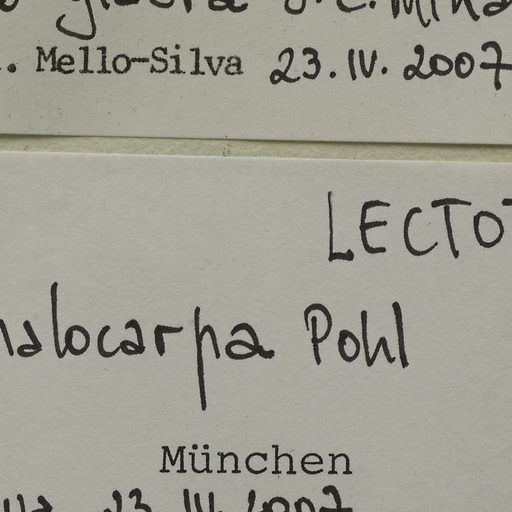 . Mello-Silva 23.IV.2007
LECTOT
alocarpa Pohl
München
23 IV 2007